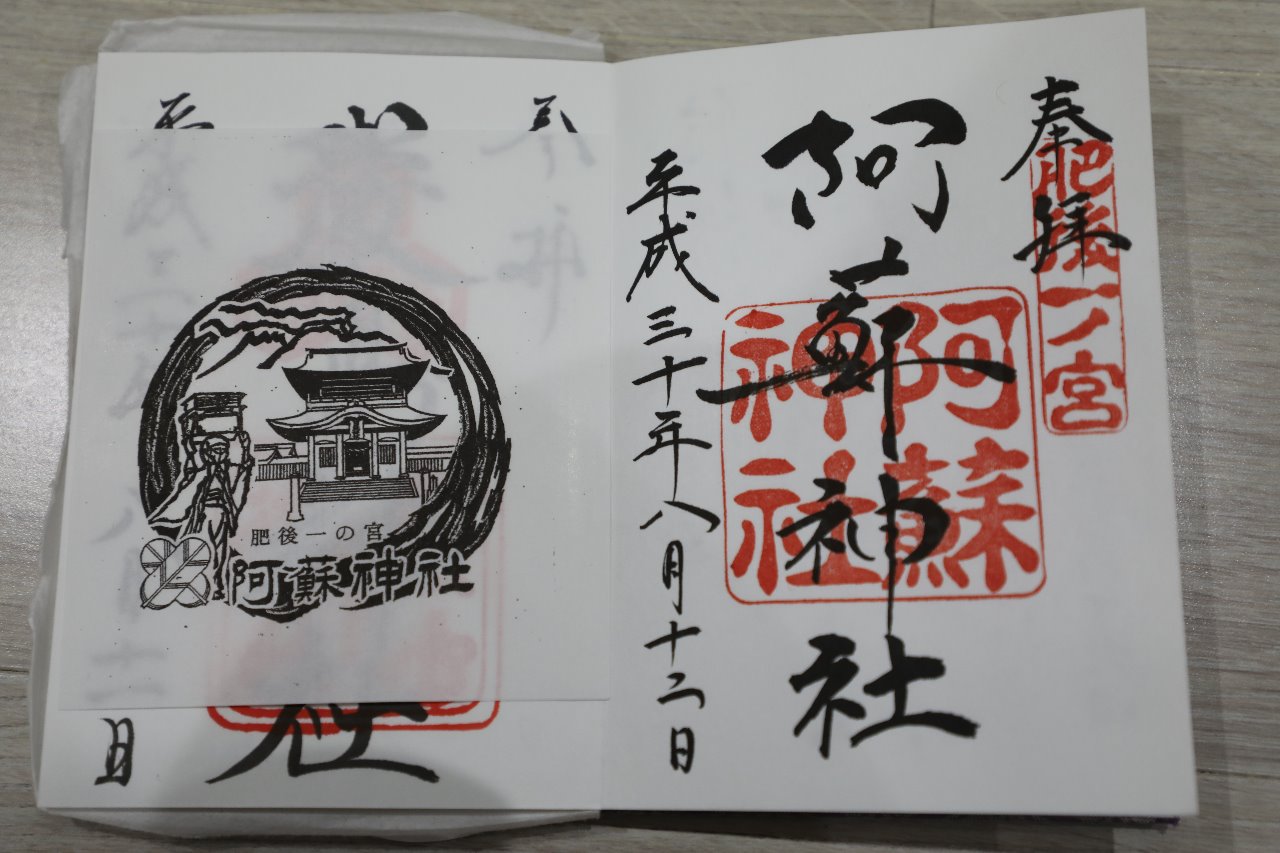 奉拝
肥後一ノ宮
阿蘇神社
阿蘇
神社
平成三十年八月十二日
肥後一の宮
阿蘇神社
日